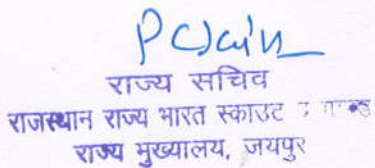 P C Jain
राज्य सचिव
राजस्थान राज्य भारत स्काउट
राज्य मुख्यालय, जयपुर